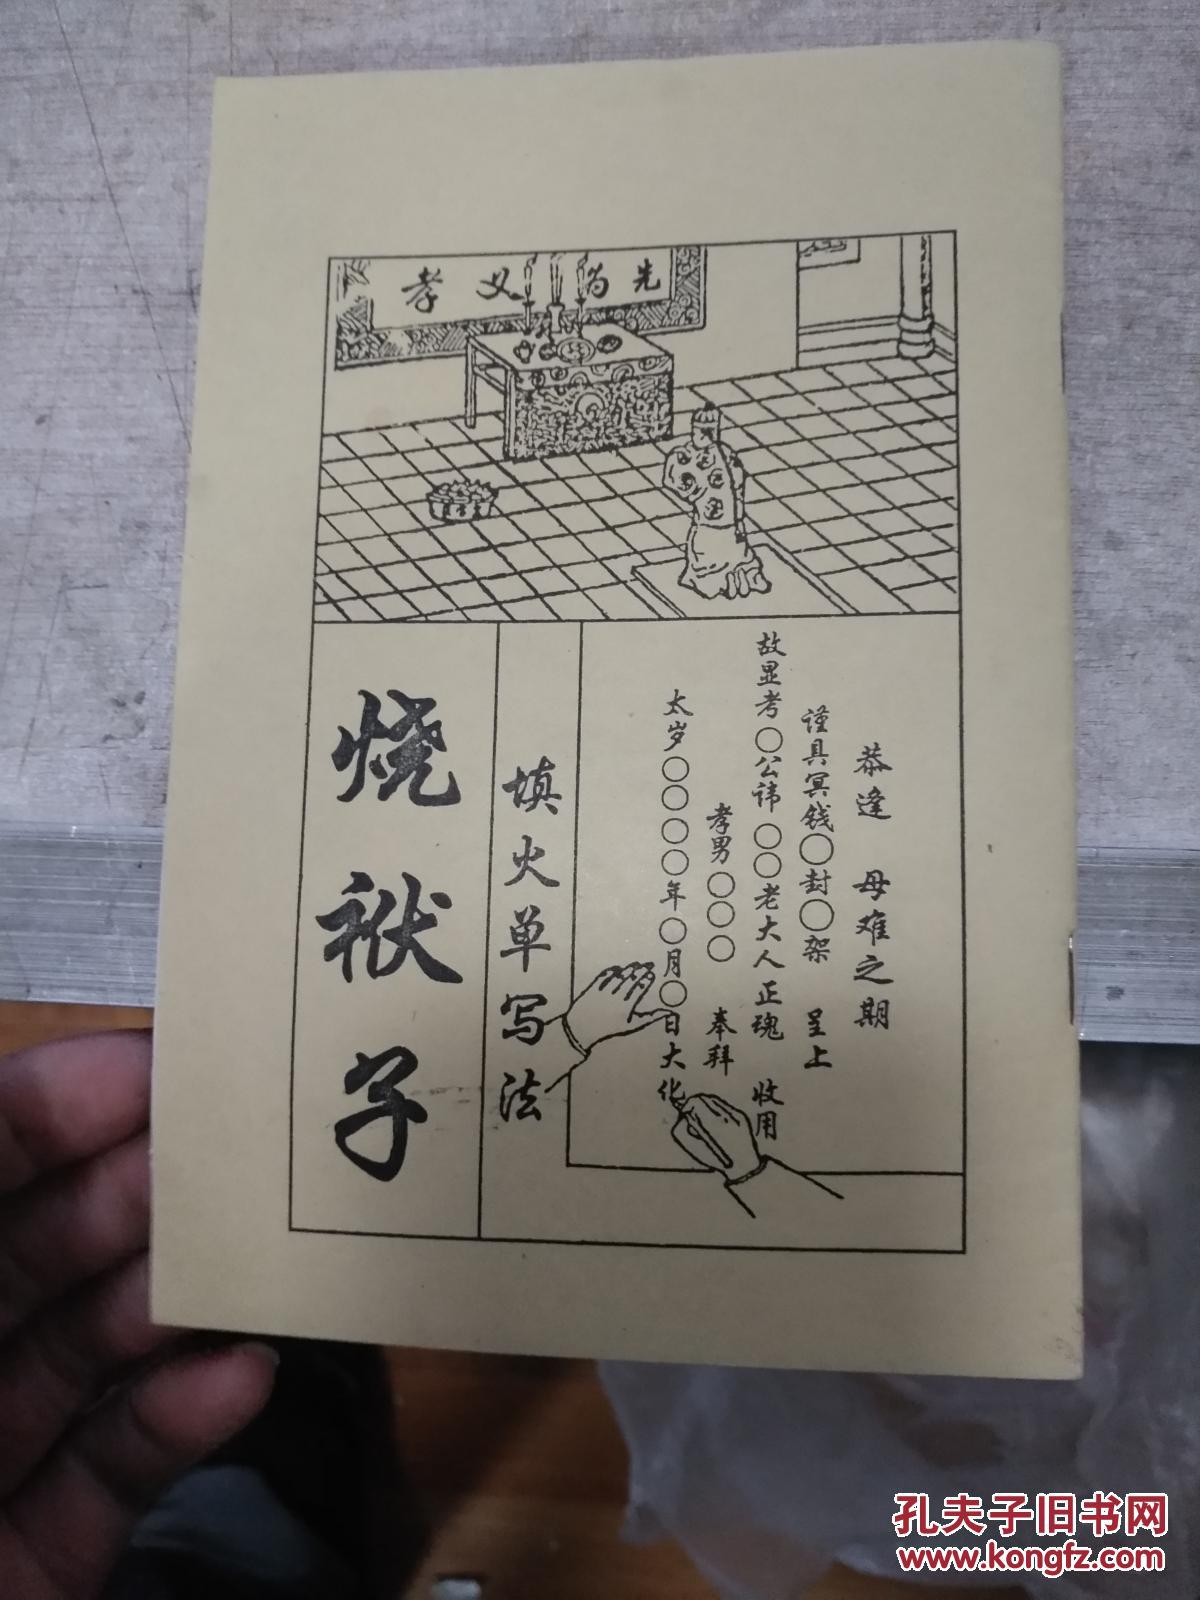 孝义为先
恭逢 母难之期
谨具冥钱〇封〇架 呈上
故显考〇公讳〇〇老大人正魂 收用
孝男〇〇〇 奉拜
太岁〇〇〇〇年〇月〇日大化
填火单写法
烧袱子
孔夫子旧书网
www.kongfz.com